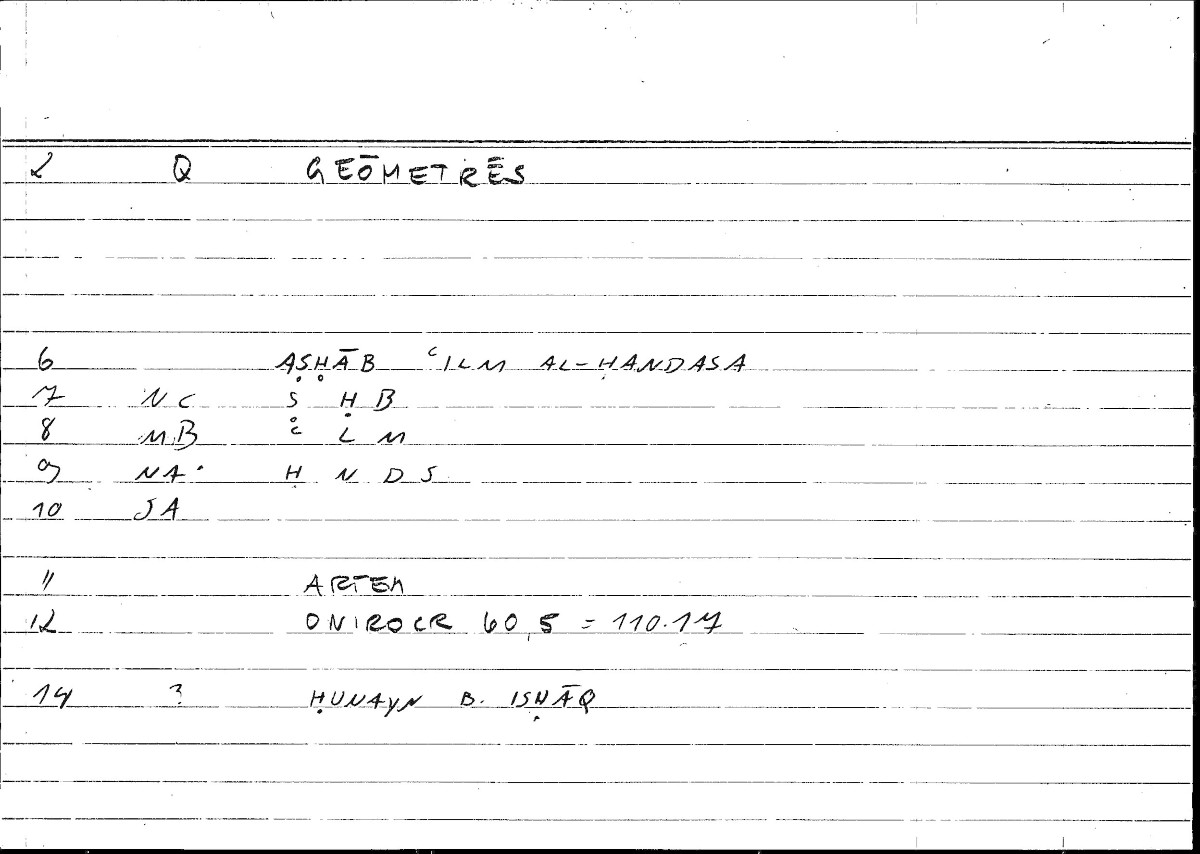 2 Q GEŌMETRĒS
6 AṢḤĀB ʿILM AL-HANDASA
7 NC Ṣ Ḥ B
8 MB ʿ L M
9 NA H N D S
10 JA
11 ARTEM
12 ONIROCR 60,5 = 110.17
14 3 ḤUNAYN B. ISḤĀQ